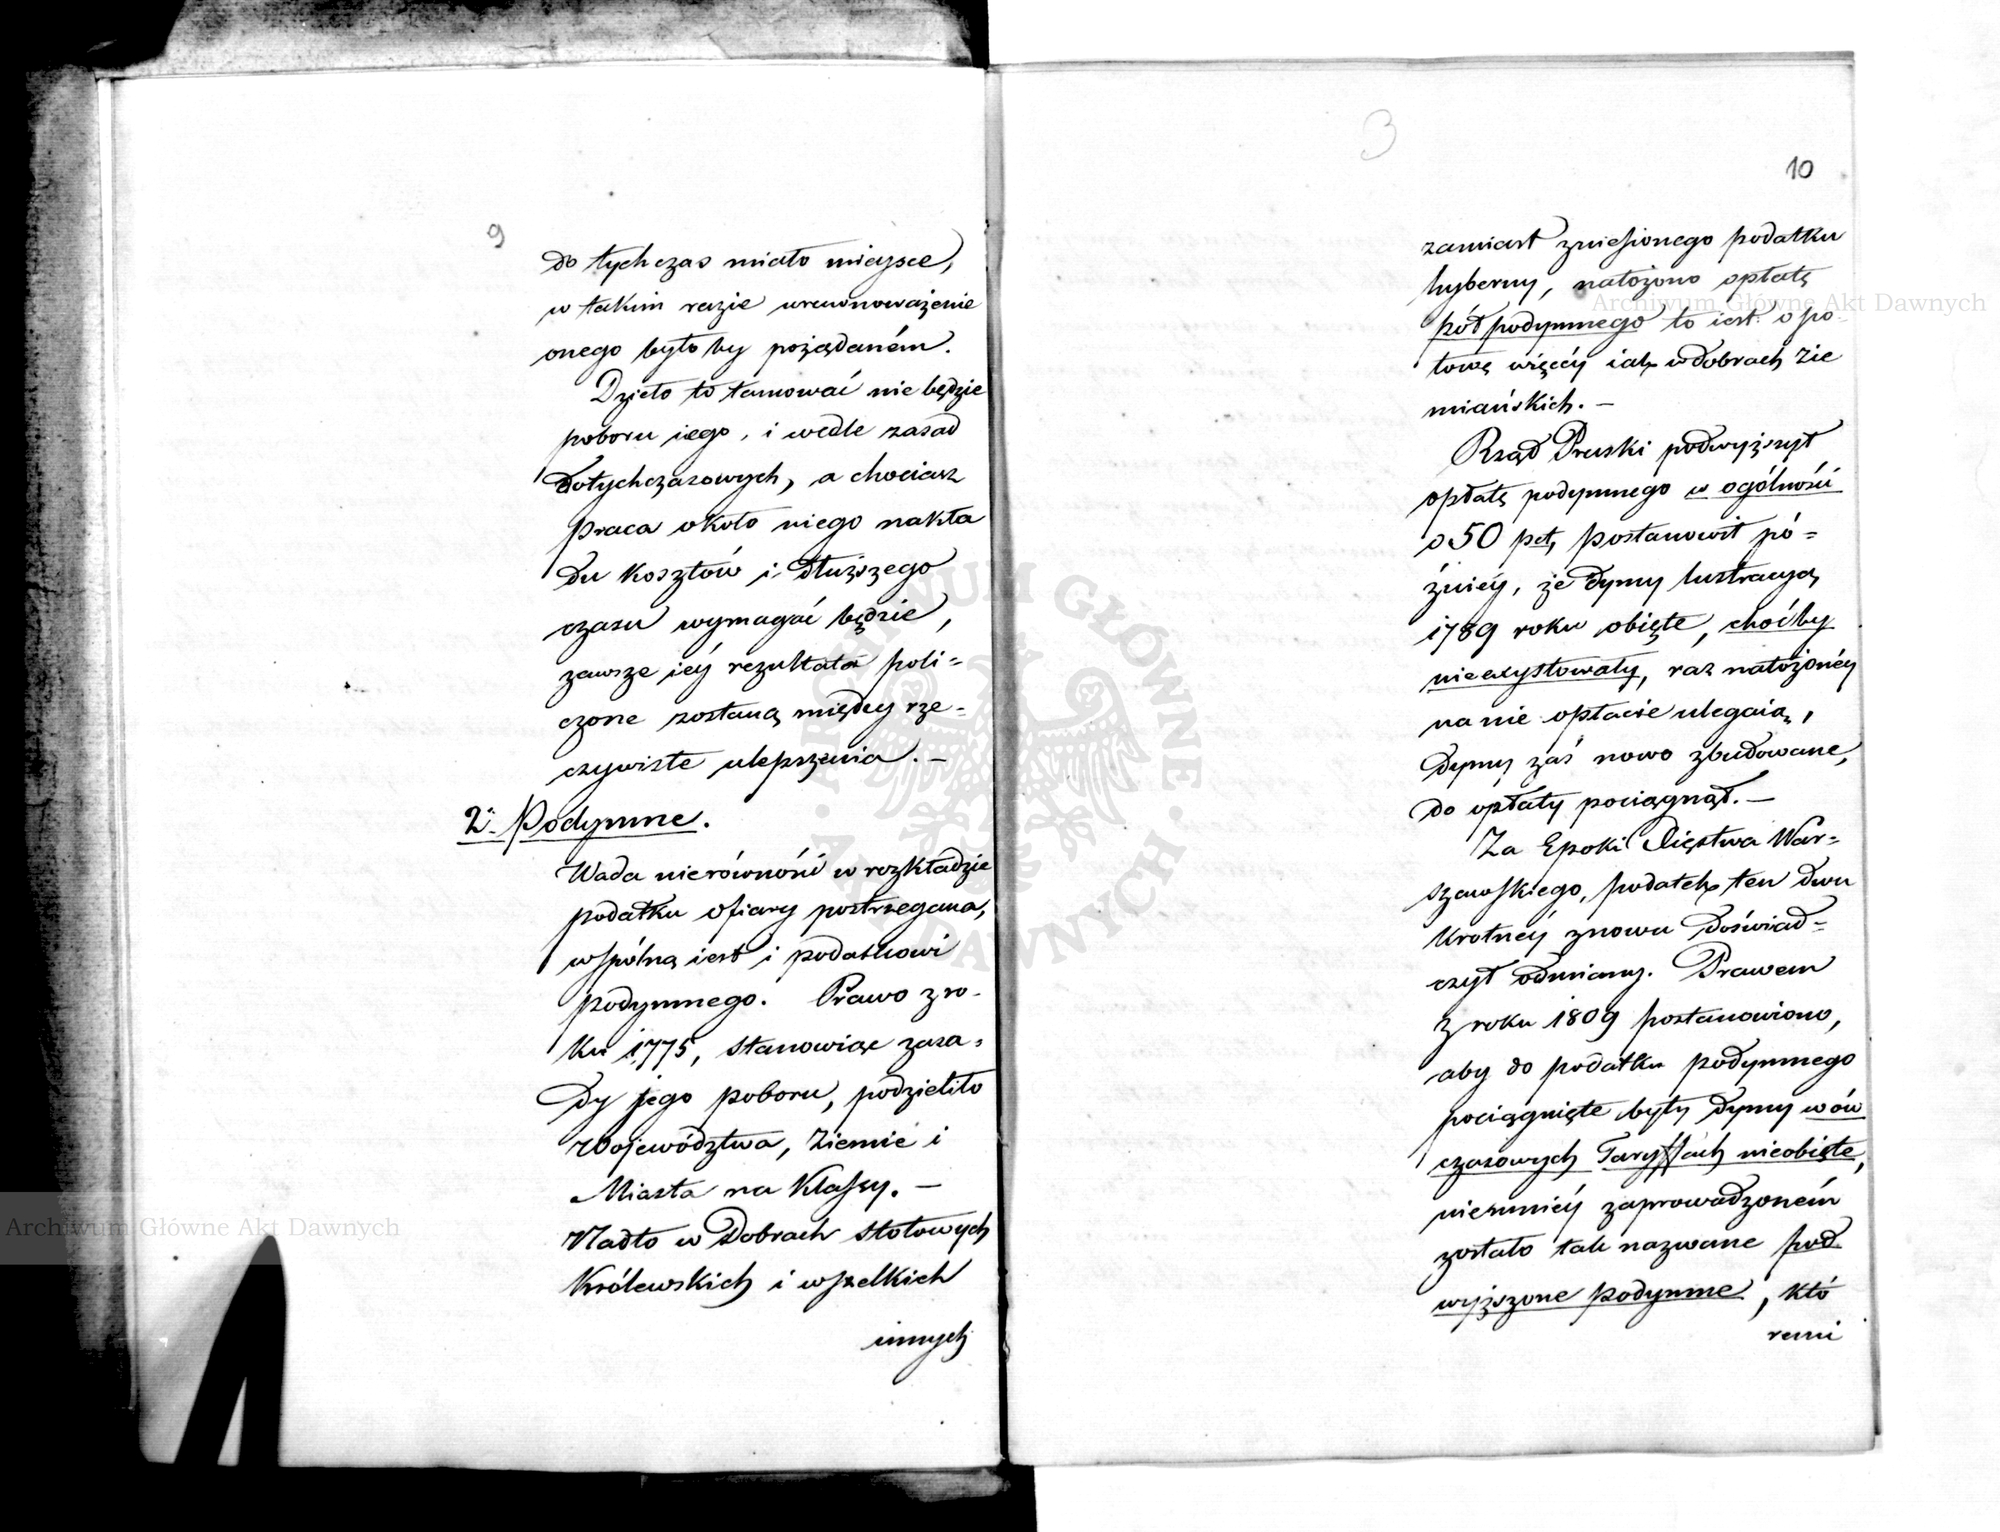 9
do tychczas miało mieysce,
w takim razie urównoważenie
onego było by pożądaném.
Dzieło to tamować nie będzie
poboru iego, i wedle zasad
dotychczasowych, a chociasz
praca około niego nakła
du kosztów i dłuższego
czasu wymagać będzie,
zawsze iéy rezultata poli=
czone zostaną między rze=
czywiste ulepszenia. –
2. Podymne.
Wada nierówności w rozkładzie
podatku ofiary postrzegana,
wspólną iest i podatkowi
podymnego. Prawo z ro-
ku 1775, stanowiąc zasa=
dy jego poboru, podzieliło
Województwa, Ziemie i
Miasta na Klassy. –
Nadto w Dobrach stołowych
Królewskich i wszelkich
innych
3
10
zamiast zniesionego podatku
hyberny, nałożono opłatę
półpodymnego to iest o po-
łowę więcéy iak w dobrach Zie
miańskich. –
Rząd Pruski podwyższył
opłatę podymnego w ogólności
o 50 pct, postanowił pó=
źniéy, że dymy lustracyą
1789 roku obięte, choćby
nieexystowały, raz nałożonéy
na nie opłacie ulegaią,
dymy zaś nowo zbudowane,
do opłaty pociągnął. –
Za Epoki Xięstwa War=
szawskiego, podatek ten dwu
krotnéy znowu doświad=
czył odmiany. Prawem
z roku 1809 postanowiono,
aby do podatku podymnego
pociągnięte były dymy w ów
czasowych Taryffach nieobięte,
niemniéy zaprowadzoném
zostało tak nazwane pod
wyższone podymne, któ
remi
Archiwum Główne Akt Dawnych
Archiwum Główne Akt Dawnych
ARCHIWUM GŁÓWNE AKT DAWNYCH